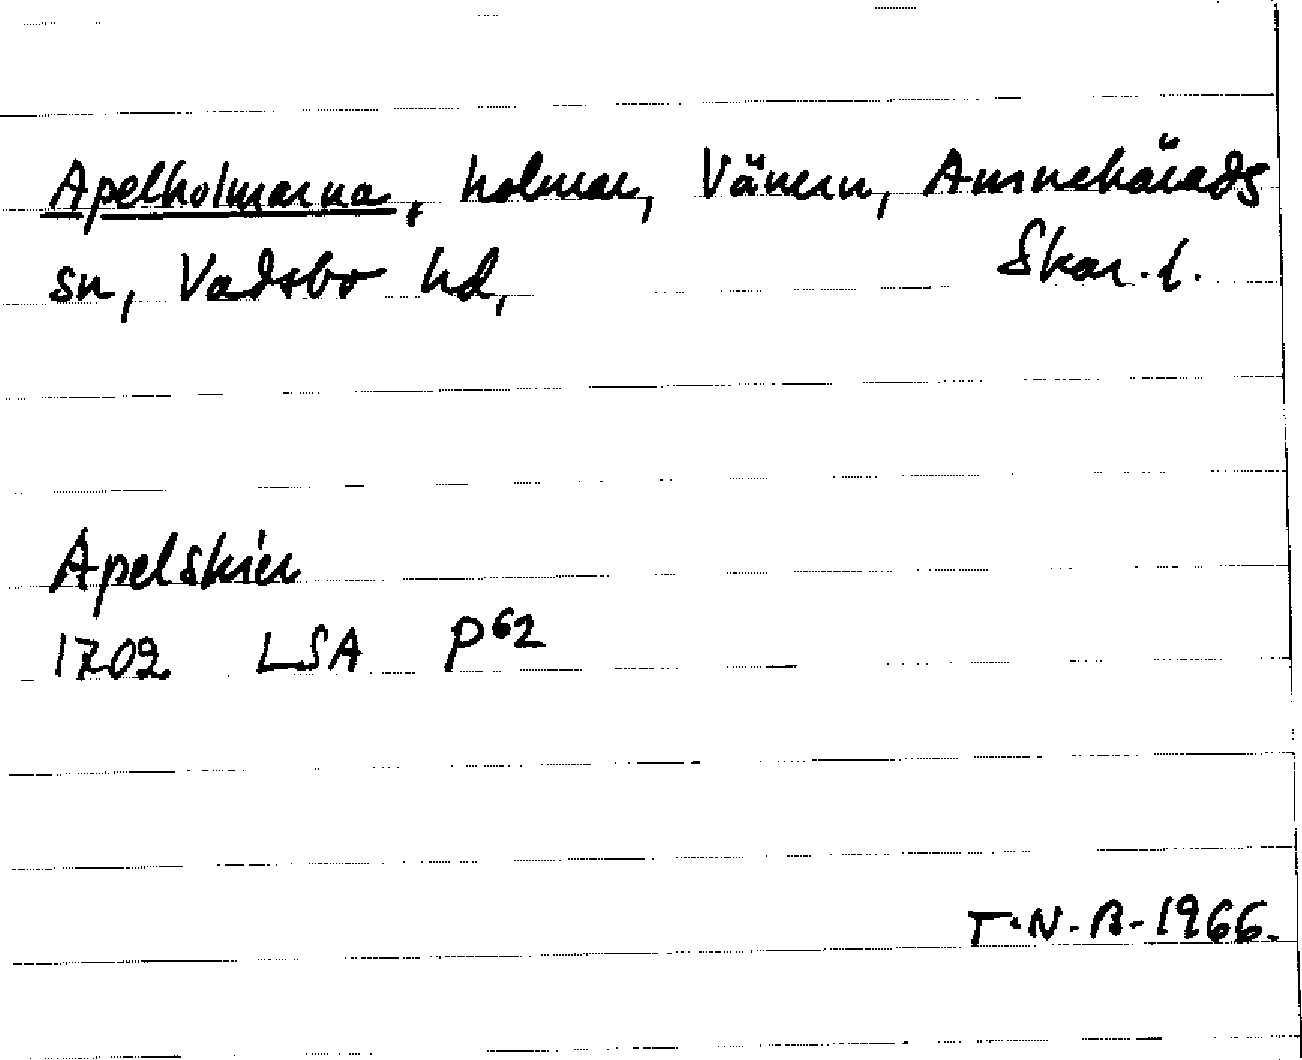 Apelholmarna, holmar, Vänern, Amnehärads
sn, Vadsbo hd, Skar. l.
Apelskier
1702 LSA P62
T.N.B. 1966.